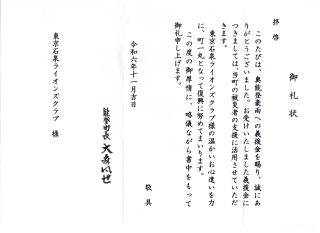 御礼状
拝啓
このたびは、奥能登豪雨への義援金を賜り、誠にあ
りがとうございました。お受けいたしました義援金に
つきましては、当町の被災者の支援に活用させていただ
きます。
東京石泉ライオンズクラブ様の温かいお心遣いを力
に、町一丸となって復興に努めてまいります。
この度の御厚情に、略儀ながら書中をもって
御礼申し上げます。
敬具
令和六年十一月吉日
能登町長 大森凡世
東京石泉ライオンズクラブ 様